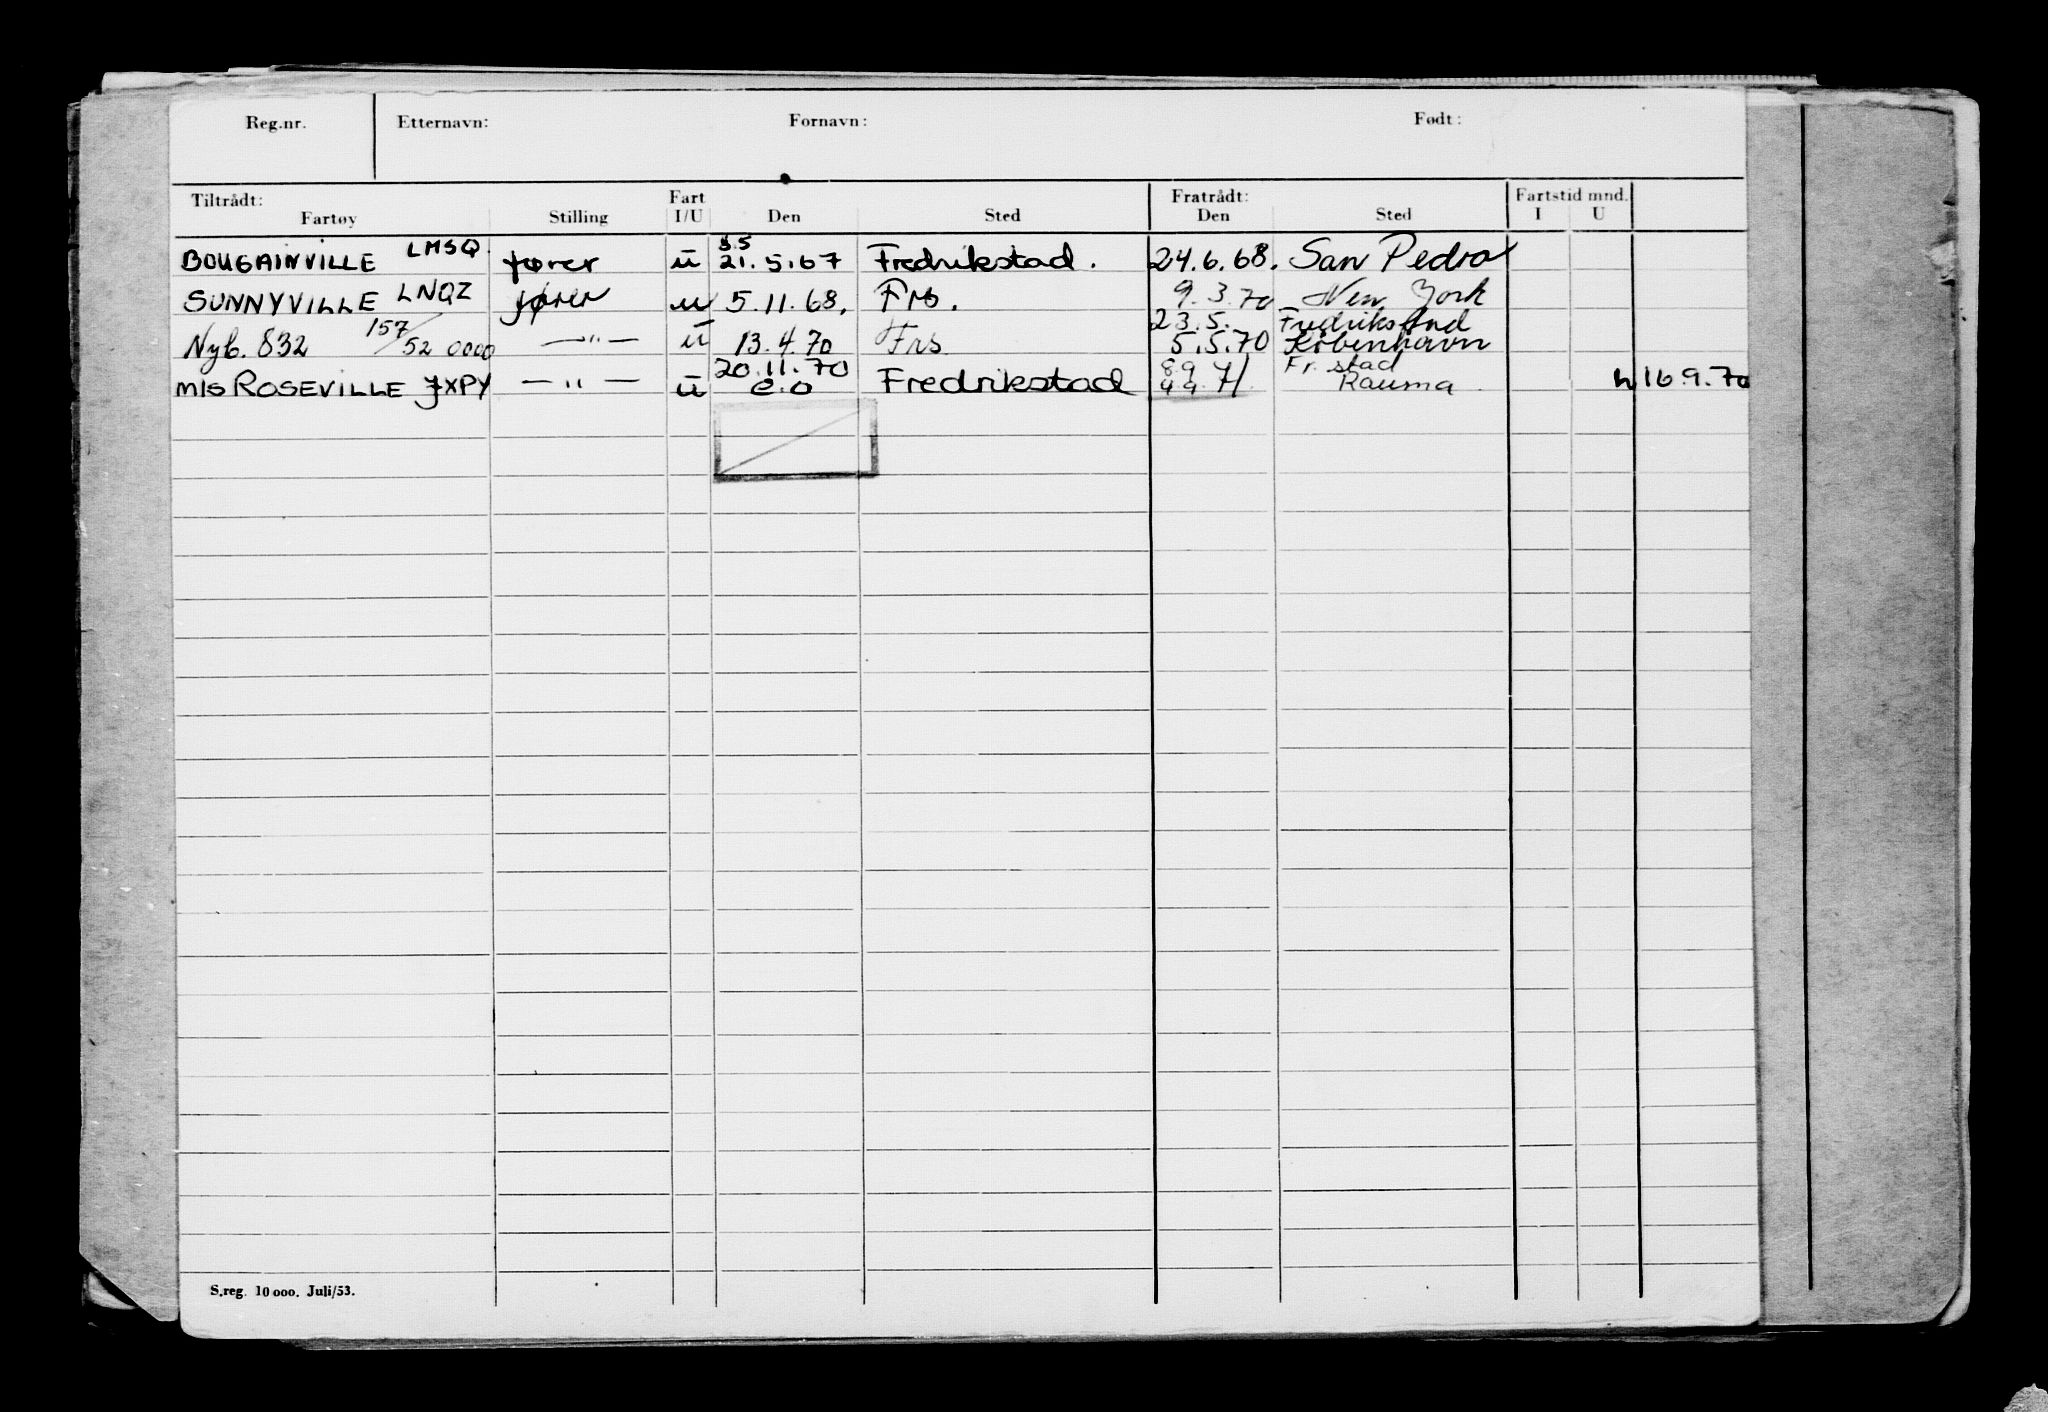 Reg.nr. Etternavn: Fornavn: Født:
Tiltrådt: Fart Fratrådt: Fartstid mnd.
Fartøy Stilling I/U Den Sted Den Sted I U
8.5
BOUGAINVILLE LMSQ. fører u 21.5.67 Fredrikstad. 24.6.68. San Pedro
SUNNYVILLE LNQZ fører u 5.11.68. Frs. 9.3.70 New York
23.5. Fredrikstad
Nyb. 832 157/52 0000 —"— u 13.4.70 Frs 5.5.70 København
20.11.70 8.9 71 Fr.stad
M/S ROSEVILLE JXPY —"— u e.o Fredrikstad Rauma h 16.9.70
S.reg. 10 000. Juli/53.